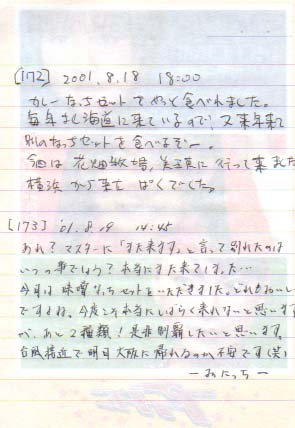 [172] 2001.8.18 18:00
カレーなっちセットをやっと食べれました。
毎年北海道に来ているので、又来年来て
別のなっちセットを食べるぞー。
今回は花畑牧場、美瑛に行って来ました
横浜から来た ぱくでした。
[173] '01.8.19 14:45
あれ?マスターに「また来ます」と言って別れたのは
いつの事でしょう?本当にまた来てしまった…
今日は味噌なっちセットをいただきました。どれもおいしい
ですよね。今度こそ本当にしばらく来れないと思います
が、あと2種類!是非制覇したいと思います。
台風接近で明日大阪に帰れるのか不安です(笑)
—みたっち—